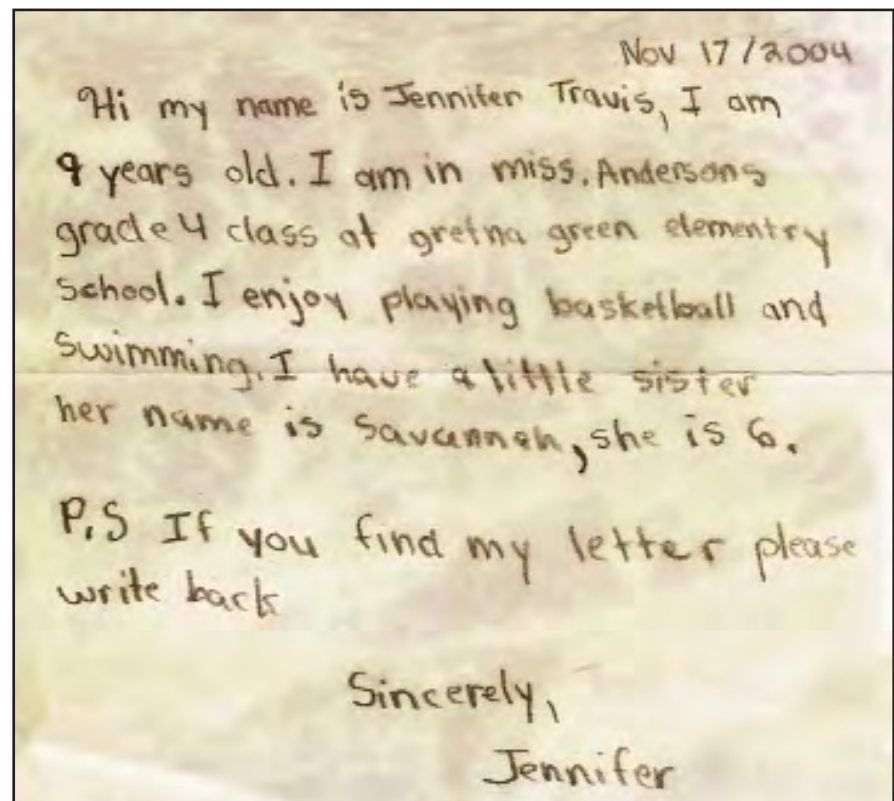 Nov 17/2004
Hi my name is Jennifer Travis, I am
9 years old. I am in miss. Andersons
grade 4 class at gretna green elementry
School. I enjoy playing basketball and
Swimming. I have a little sister
her name is Savannah, she is 6.
P.S If you find my letter please
write back
Sincerely,
Jennifer